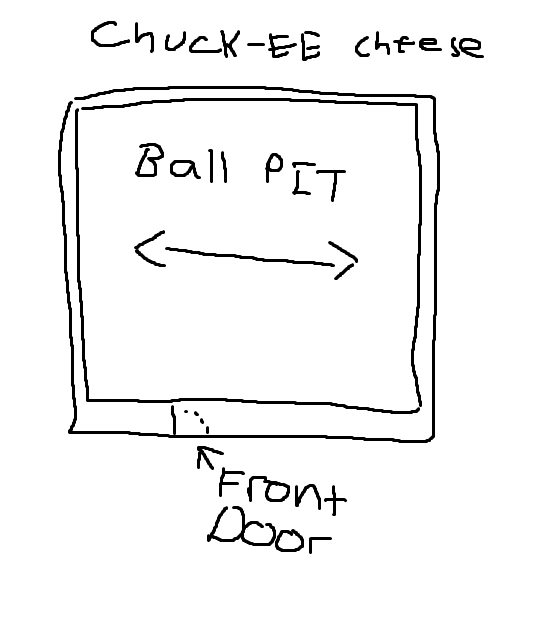 Chuck-EE cheese
Ball PIT
Front
Door